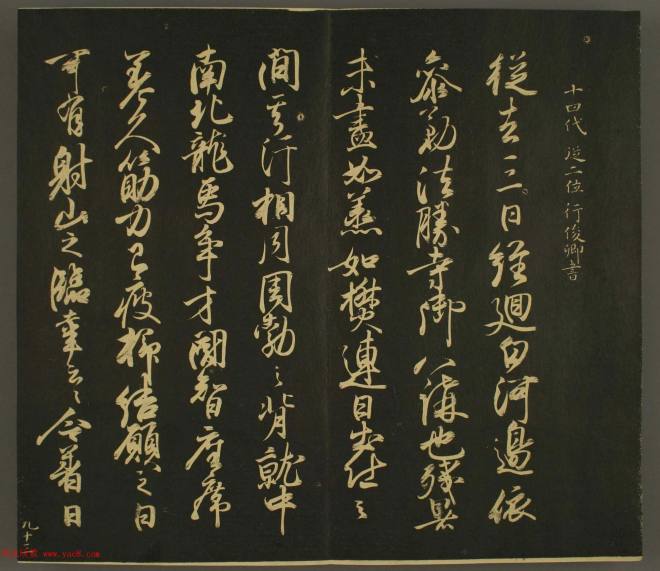 十四代 従二位 行俊卿書
従去三日経廻白河邊依
参勤法勝寺御八講也残暑
未盡如蒸如焚連日出仕之
間其汗相同周勃之背就中
南北龍馬争才闘智座席
甚久筋力已疲抑結願之日
可有射山之臨幸云々今暮日
九十二